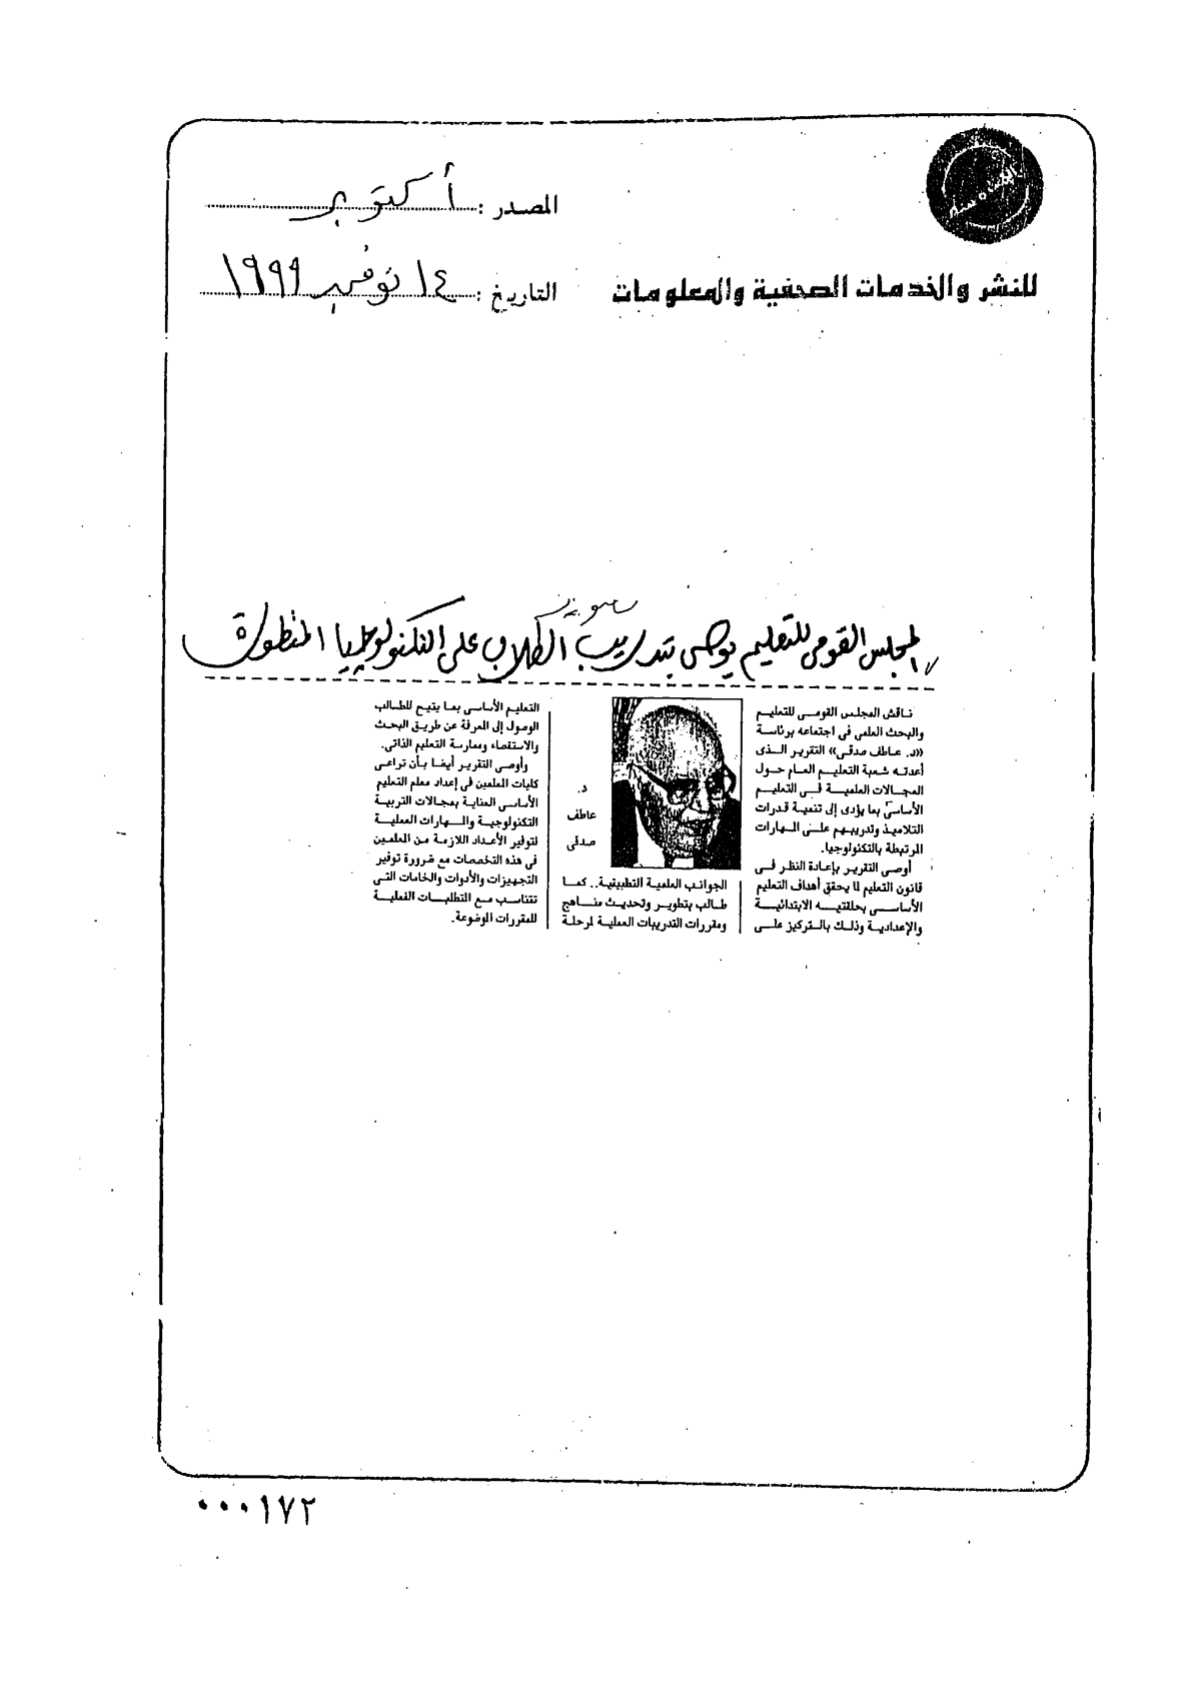 المصدر : أكتوبر
للنشر والخدمات الصحفية والمعلومات
التاريخ : ١٤ نوفمبر ١٩٩٩
المجلس القومى للتعليم يوصى بتدريب الطلاب على التكنولوجيا المتطورة
ناقش المجلس القومى للتعليم
والبحث العلمى فى اجتماعه برئاسة
«د. عاطف صدقى» التقرير الذى
أعدته شعبة التعليم العام حول
المجالات العلمية فى التعليم
الأساسى بما يؤدى إلى تنمية قدرات
التلاميذ وتدريبهم على المهارات
المرتبطة بالتكنولوجيا.
أوصى التقرير بإعادة النظر فى
قانون التعليم لما يحقق أهداف التعليم
الأساسى بحلقتيه الابتدائية
والإعدادية وذلك بالتركيز على
د.
عاطف
صدقى
الجوانب العلمية التطبيقية.. كما
طالب بتطوير وتحديث مناهج
ومقررات التدريبات العملية لمرحلة
التعليم الأساسى بما يتيح للطالب
الوصول إلى المعرفة عن طريق البحث
والاستقصاء وممارسة التعليم الذاتى.
وأوصى التقرير أيضا بأن تراعى
كليات المعلمين فى إعداد معلم التعليم
الأساسى العناية بمجالات التربية
التكنولوجية والمهارات العملية
لتوفير الأعداد اللازمة من المعلمين
فى هذه التخصصات مع ضرورة توفير
التجهيزات والأدوات والخامات التى
تتناسب مع المتطلبات الفعلية
للمقررات الموضوعة.
٠٠٠١٧٢